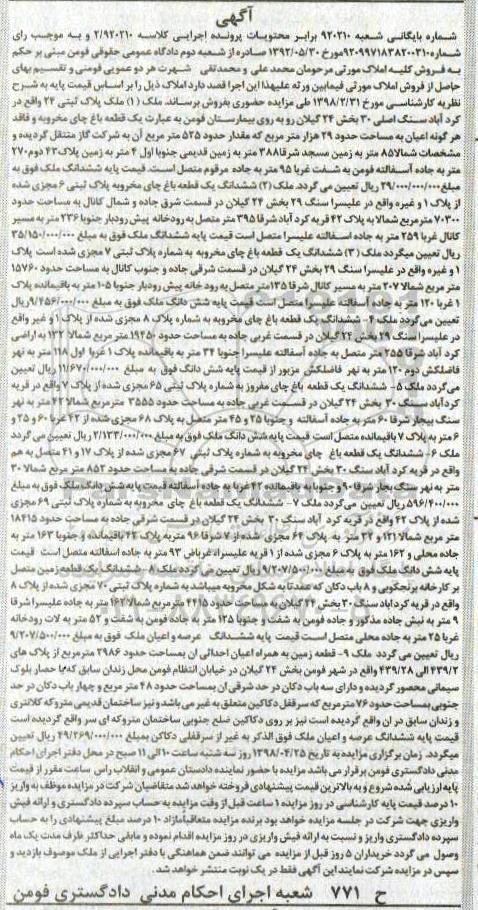 آگهی
شماره بایگانی شعبه ۹۲۰۲۱۰ برابر محتویات پرونده اجرایی کلاسه ۲/۹۲۰۲۱۰ و به موجب رای
شماره ۹۲۰۹۹۷۱۸۳۸۲۰۰۳۱۰ مورخ ۱۳۹۲/۰۵/۳۰ صادره از شعبه دوم دادگاه عمومی حقوقی فومن مبنی بر حکم
به فروش کلیه املاک مورثی مرحومان محمد علی و محمدتقی شهرت هر دو عمویی فومنی و تقسیم بهای
حاصل از فروش املاک مورثی فیمابین ورثه علیهذا این اجرا قصد دارد املاک ذیل را بر اساس قیمت پایه به شرح
نظریه کارشناسی مورخ ۱۳۹۸/۲/۳۱ طی مزایده حضوری بفروش برساند. ملک (۱) ملک پلاک ثبتی ۲۴ واقع در
کرد آباد سنگ اصلی ۳۰ بخش ۲۴ گیلان رو به روی بیمارستان فومن به عبارت یک قطعه باغ چای مخروبه و فاقد
هر گونه اعیان به مساحت حدود ۲۹ هزار متر مربع که مقدار حدود ۵۲۵ متر مربع آن به شرکت گاز منتقل گردیده و
مشخصات شمالا ۸۵ متر به زمین مسجد شرقا ۳۸۸ متر به زمین قدیمی جنوبا اول ۴ متر به زمین پلاک ۴۳ دوم ۲۷۰
متر به جاده آسفالته فومن به شفت غربا ۹۵ متر به جاده مرقوم متصل است. قیمت پایه ششدانگ ملک فوق به
مبلغ ۲۹/۰۰۰/۰۰۰/۰۰۰ ریال تعیین می گردد. ملک (۲) ششدانگ یک قطعه باغ چای مخروبه پلاک ثبتی ۶ مجزی شده
از پلاک ۱ و غیره واقع در علیسرا سنگ ۲۹ بخش ۲۴ گیلان در قسمت شرق جاده و شمال کانال به مساحت حدود
۷۰۳۰۰ مترمربع شمالا به پلاک ۴۲ قریه کرد آباد شرقا ۳۹۵ متر متصل به رودخانه پیش رودبار جنوبا ۲۳۶ متر به مسیر
کانال غربا ۲۵۹ متر به جاده آسفالته علیسرا متصل است قیمت پایه ششدانگ ملک فوق به مبلغ ۳۵/۱۵۰/۰۰۰/۰۰۰
ریال تعیین میگردد ملک (۳) ششدانگ یک قطعه باغ چای مخروبه به شماره پلاک ثبتی ۷ مجزی شده است پلاک
۱ و غیره واقع در علیسرا سنگ ۲۹ بخش ۲۴ گیلان در قسمت شرقی جاده و جنوب کانال به مساحت حدود ۱۵۷۶۰
متر مربع شمالا ۲۰۷ متر به مسیر کانال شرقا ۱۳۵ متر متصل به رود خانه پیش رودبار جنوبا ۱۰۵ متر به باقیمانده پلاک
۱ غربا ۱۲۰ متر به جاده آسفالته علیسرا متصل است قیمت پایه شش دانگ ملک فوق به مبلغ ۹/۴۵۶/۰۰۰/۰۰۰ ریال
تعیین می گردد ملک ۴- ششدانگ یک قطعه باغ چای مخروبه به شماره پلاک ۸ مجزی شده از پلاک ۱ و غیر واقع
در علیسرا سنگ ۲۹ بخش ۲۴ گیلان در قسمت غربی جاده به مساحت حدود ۱۹۴۵۰ متر مربع شمالا ۱۳۲ به اراضی
کرد آباد شرقا ۲۵۵ متر متصل به جاده آسفالته علیسرا جنوبا ۳۴ متر به باقیمانده پلاک ۱ غربا اول ۱۱۸ متر به نهر
فاضلکش دوم ۱۲۰ متر به نهر فاضلکش مزبور از قیمت پایه شش دانگ فوق به مبلغ ۱۱/۶۷۰/۰۰۰/۰۰۰ ریال تعیین
می گردد ملک ۵- ششدانگ یک قطعه باغ چای مفروز به شماره پلاک ثبتی ۶۵ مجزی شده از پلاک ۷ واقع در قریه
کردآباد سنگ ۳۰ بخش ۲۴ گیلان در قسمت غربی جاده به مساحت حدود ۳۵۵۵ مترمربع شمالا ۴۲ متر به نهر
سنگ بیجار شرقا ۶۰ متر به جاده آسفالته و جنوبا ۲۵ و ۴۵ متر متصل به پلاک ۶۸ مجزی شده از ۴۲ غربا ۶۰ و ۲۵ و
۶ متر به پلاک ۷ باقیمانده متصل است قیمت پایه شش دانگ ملک فوق به مبلغ ۲/۱۳۳/۰۰۰/۰۰۰ ریال تعیین می گردد
ملک ۶- ششدانگ یک قطعه باغ چای مخروبه به شماره پلاک ثبتی ۶۷ مجزی شده از پلاک ۱۷ و ۴۱ متصل به هم
واقع در قریه کرد آباد سنگ ۳۰ بخش ۲۴ گیلان در قسمت شرقی جاده به مساحت حدود ۸۵۲ متر مربع شمالا ۳۰
متر به نهر سنگ بجار شرقا ۹۰ و جنوبا به باقیمانده ۴۲ غربا به جاده آسفالته قیمت پایه شش دانگ ملک فوق به مبلغ
۵۹۶/۴۰۰/۰۰۰ ریال تعیین می گردد ملک ۷- ششدانگ یک قطعه باغ چای مخروبه به شماره پلاک ثبتی ۶۹ مجزی
شده از پلاک ۴۲ واقع در قریه کرد آباد سنگ ۳۰ بخش ۲۴ گیلان در قسمت شرقی جاده به مساحت حدود ۱۸۴۱۵
متر مربع شمالا ۱۲۱ و ۳۲ متر به پلاک ۶۴ مجزی شده از ۷ شرقا ۹۶ متربه پلاک ۴۲ باقیمانده و جنوبا ۱۶۳ متر به
جاده محلی و ۱۶۲ متر به پلاک ۶ مجزی شده از ۱ قریه علیسرا، غرباض ۹۳ متر به جاده آسفالته متصل است قیمت
پایه شش دانگ ملک فوق به مبلغ ۹/۲۰۷/۵۰۰/۰۰۰ ریال تعیین می گردد ملک ۸- ششدانگ یک قطعه زمین متصل
بر کارخانه برنجکوبی و ۸ باب دکان که عمدتا به شکل مخروبه میباشد به شماره پلاک ثبتی ۷۰ مجزی شده از پلاک ۸
واقع در قریه کرداباد سنگ ۳۰ بخش ۲۴ گیلان به مساحت حدود ۴۴۱۵ مترمربع شمالا ۱۶۲ متر به جاده علیسرا شرقا
۹ متر به نبش جاده مذکور و جاده فومن به شفت و جنوبا ۱۲۵ متر به جاده فومن به شفت و ۵۲ متر به لات رودخانه
غربا ۲۵ متر به جاده محلی متصل است قیمت پایه ششدانگ عرصه و اعیان ملک فوق به مبلغ ۹/۲۰۷/۵۰۰/۰۰۰
ریال تعیین می گردد ملک ۹- قطعه زمین به همراه اعیان احداثی ان بمساحت حدود ۲۹۸۶ مترمربع از پلاک های
۴۳۹/۲ الی ۴۳۹/۲۸ واقع در شهر فومن بخش ۲۴ گیلان در خیابان انتظام فومن محل زندان سابق که با حصار بلوک
سیمانی محصور گردیده و دارای سه باب دکان در حد شرقی ان بمساحت حدود ۴۸ متر مربع و چهار باب دکان در حد
جنوبی بمساحت حدود ۷۶ مترمربع که سرقفل دکاکین متعلق به غیر می باشد و نیز ساختمان قدیمی متروکه کلانتری
و زندان سابق در ان واقع گردیده است نیز بر روی دکاکین ضلع جنوبی ساختمان متروکه ای سر واقع گردیده است
قیمت پایه ششدانگ عرصه و اعیان ملک فوق الذکر به غیر از سرقفلی دکاکن بمبلغ ۴۹/۲۶۹/۰۰۰/۰۰۰ ریال تعیین
میگردد. زمان برگزاری مزایده به تاریخ ۱۳۹۸/۰۴/۲۵ روز سه شنبه ساعت ۱۰ الی ۱۱ صبح در محل دفتر اجرای احکام
مدنی دادگستری فومن برقرار می باشد مزایده با حضور نماینده دادستان عمومی و انقلاب راس ساعت مقرر از قیمت
پایه ارزیابی شده شروع و به بالاترین قیمت پیشنهادی فروخته خواهد شد متقاضیان شرکت در مزایده موظف به واریز
۱۰ درصد قیمت پایه کارشناسی در روز مزایده ۱ ساعت قبل از وقت مزایده به حساب سپرده دادگستری و ارائه فیش
واریزی جهت شرکت در جلسه مزایده خواهد بود برنده مزایده متعاقبا مازاد ۱۰ درصد مبلغ پیشنهادی را به حساب
سپرده دادگستری واریز و نسبت به ارائه فیش واریزی در روز مزایده اقدام نموده و مابقی حداکثر ظرف مدت یک ماه
وصول می گردد خریداران ۵ روز قبل از مزایده می توانند ضمن هماهنگی با دفتر اجرایی از ملک موصوف بازدید و
سپس در مزایده شرکت نمایند این آگهی فقط در یک نوبت منتشر خواهد شد.
ح ۷۷۱ شعبه اجرای احکام مدنی دادگستری فومن